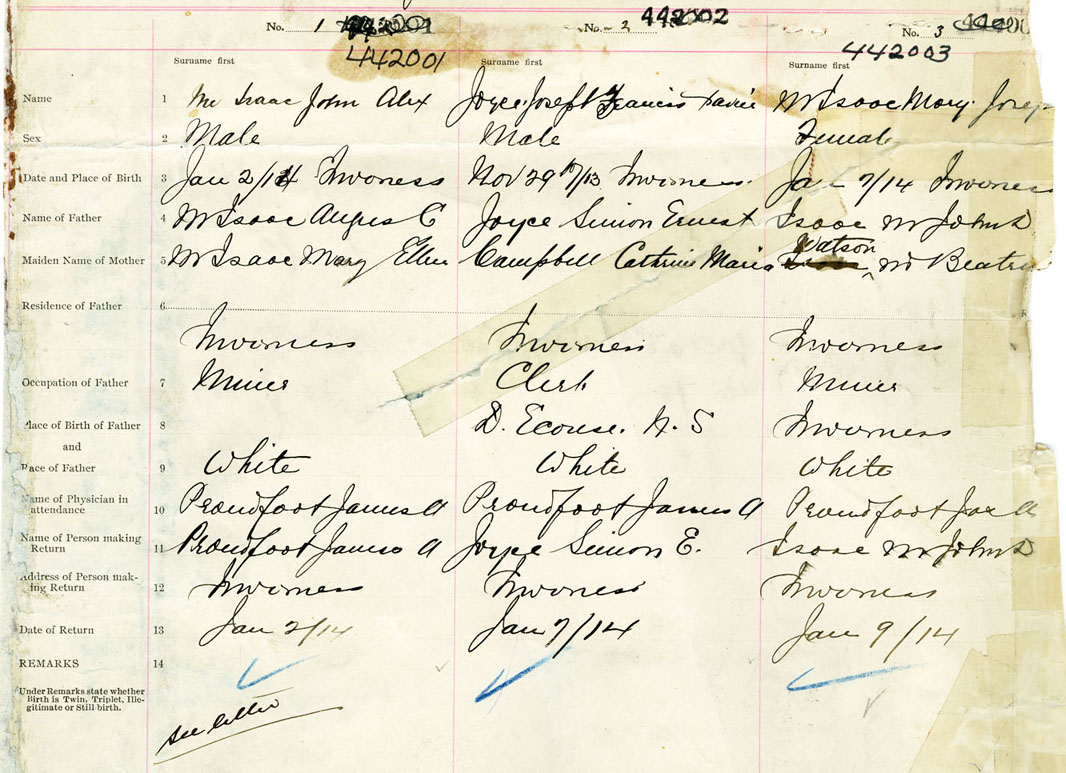 No. 1 No. 2 442002 No. 3
442001 442003
Surname first Surname first Surname first
Name 1 Mc Isaac John Alex Joyce Joseph Francis Xavier Mc Isaac Mary
Sex 2 Male Male Female
Date and Place of Birth 3 Jan 2/14 Inverness Nov 29 /13 Inverness Jan 7/14 Inverness
Name of Father 4 Mc Isaac Angus C Joyce Simon Ernest Isaac Mc John D
Watson
Maiden Name of Mother 5 Mc Isaac Mary Ellen Campbell Cathrine Maria Mc
Residence of Father 6
Inverness Inverness Inverness
Occupation of Father 7 Miner Clerk Miner
Place of Birth of Father 8 D. Ecouse. N. S Inverness
and
Race of Father 9 White White White
Name of Physician in
attendance 10 Proudfoot James A Proudfoot James A Proudfoot Jas A
Name of Person making
Return 11 Proudfoot James A Joyce Simon E. Isaac Mc John D
Address of Person mak-
ing Return 12 Inverness Inverness Inverness
Date of Return 13 Jan 2/14 Jan 7/14 Jan 9/14
REMARKS 14
Under Remarks state whether
Birth is Twin, Triplet, Ille-
gitimate or Still birth.
see letter